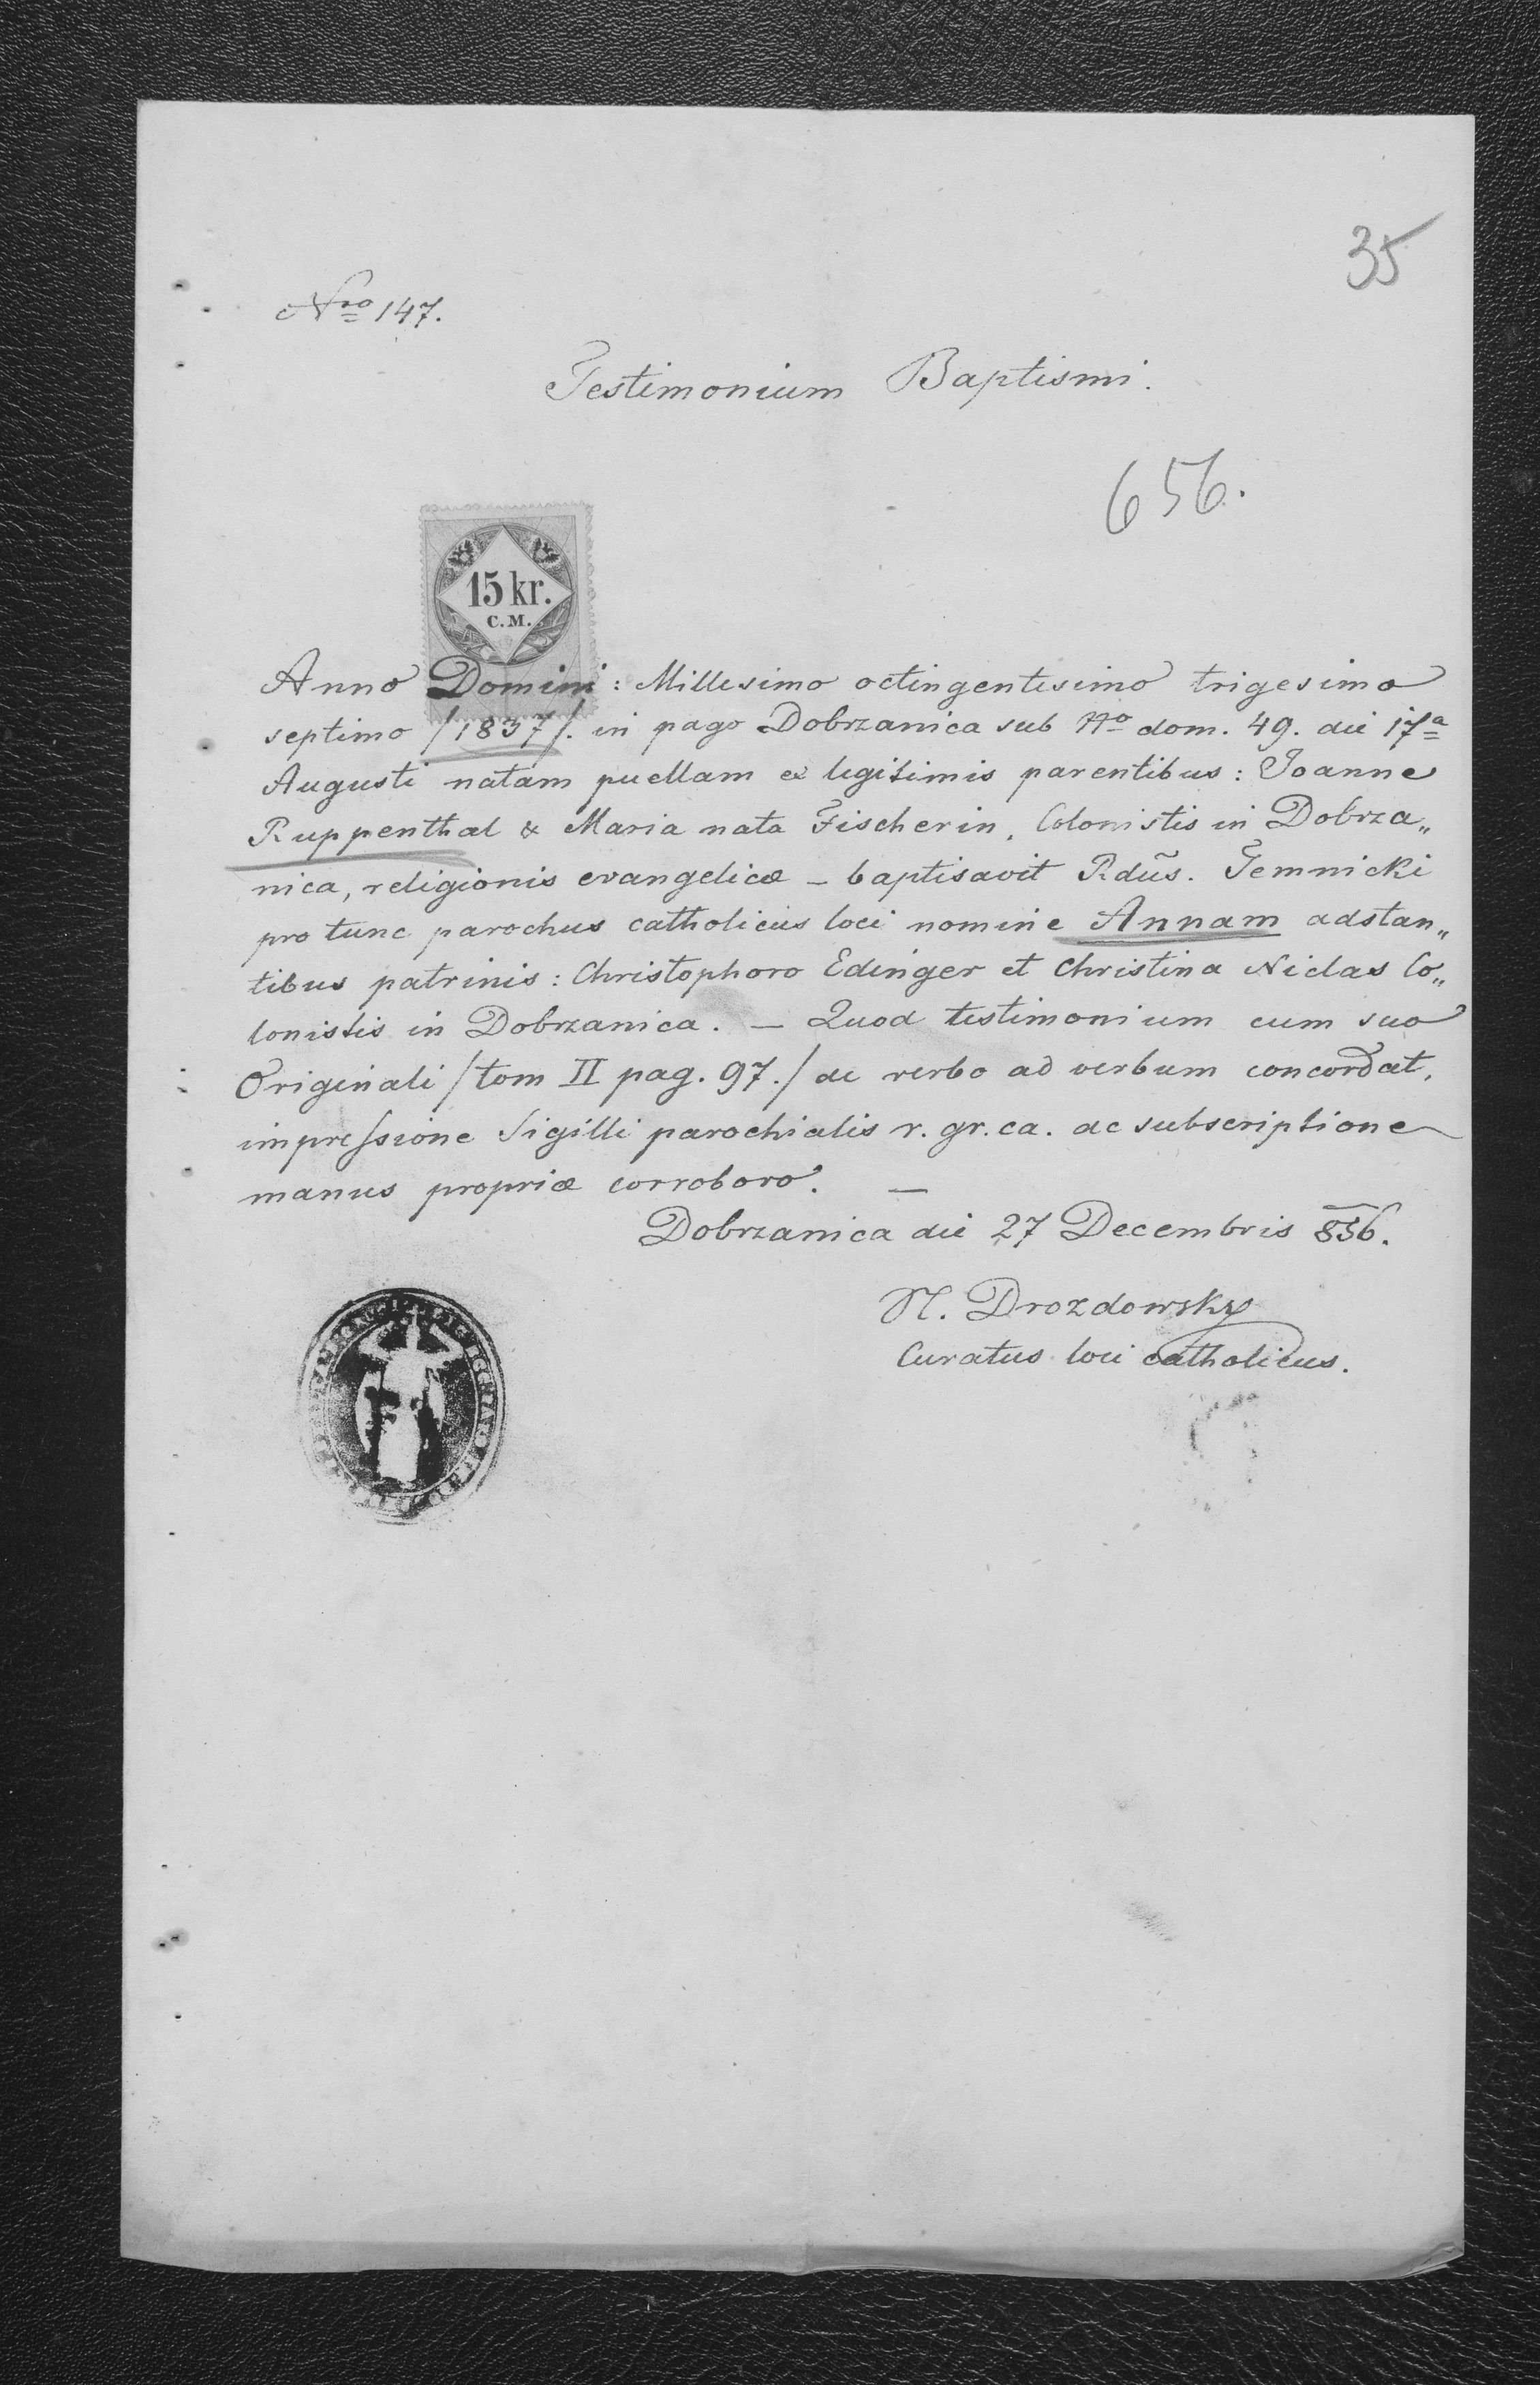 35
Nro 147.
Testimonium Baptismi.
656.
15 kr.
C.M.
Anno Domini: Millesimo octingentesimo trigesimo
septimo /1837/. in pago Dobrzanica sub No dom. 49. die 17a
Augusti natam puellam ex legitimis parentibus: Joanne
Ruppenthal & Maria nata Fischerin, Colonistis in Dobrza„
nica, religionis evangelicæ – baptisavit Rdũs. Temnicki
pro tunc parochus catholicus loci nomine Annam adstan„
tibus patrinis: Christophoro Edinger et Christina Niclas Co„
lonistis in Dobrzanica. — Quod testimonium cum suo
Originali /tom II pag. 97./ de verbo ad verbum concordat,
impressione Sigilli parochialis r. gr. ca. ac subscriptione
manus propriæ corroboro. —
Dobrzanica die 27 Decembris 856.
N. Drozdowsky
Curatus loci catholicus.